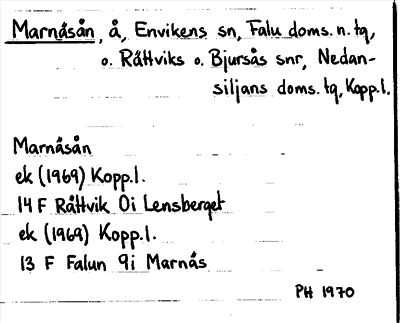 Marnäsån, å, Envikens sn, Falu doms. n. tq,
o. Rättviks o. Bjursås snr, Nedan-
siljans doms. tq, Kopp.l.
Marnäsån
ek (1969) Kopp.l.
14 F Rättvik 0i Lensberget
ek (1969) Kopp.l.
13 F Falun 9i Marnäs
PH 1970